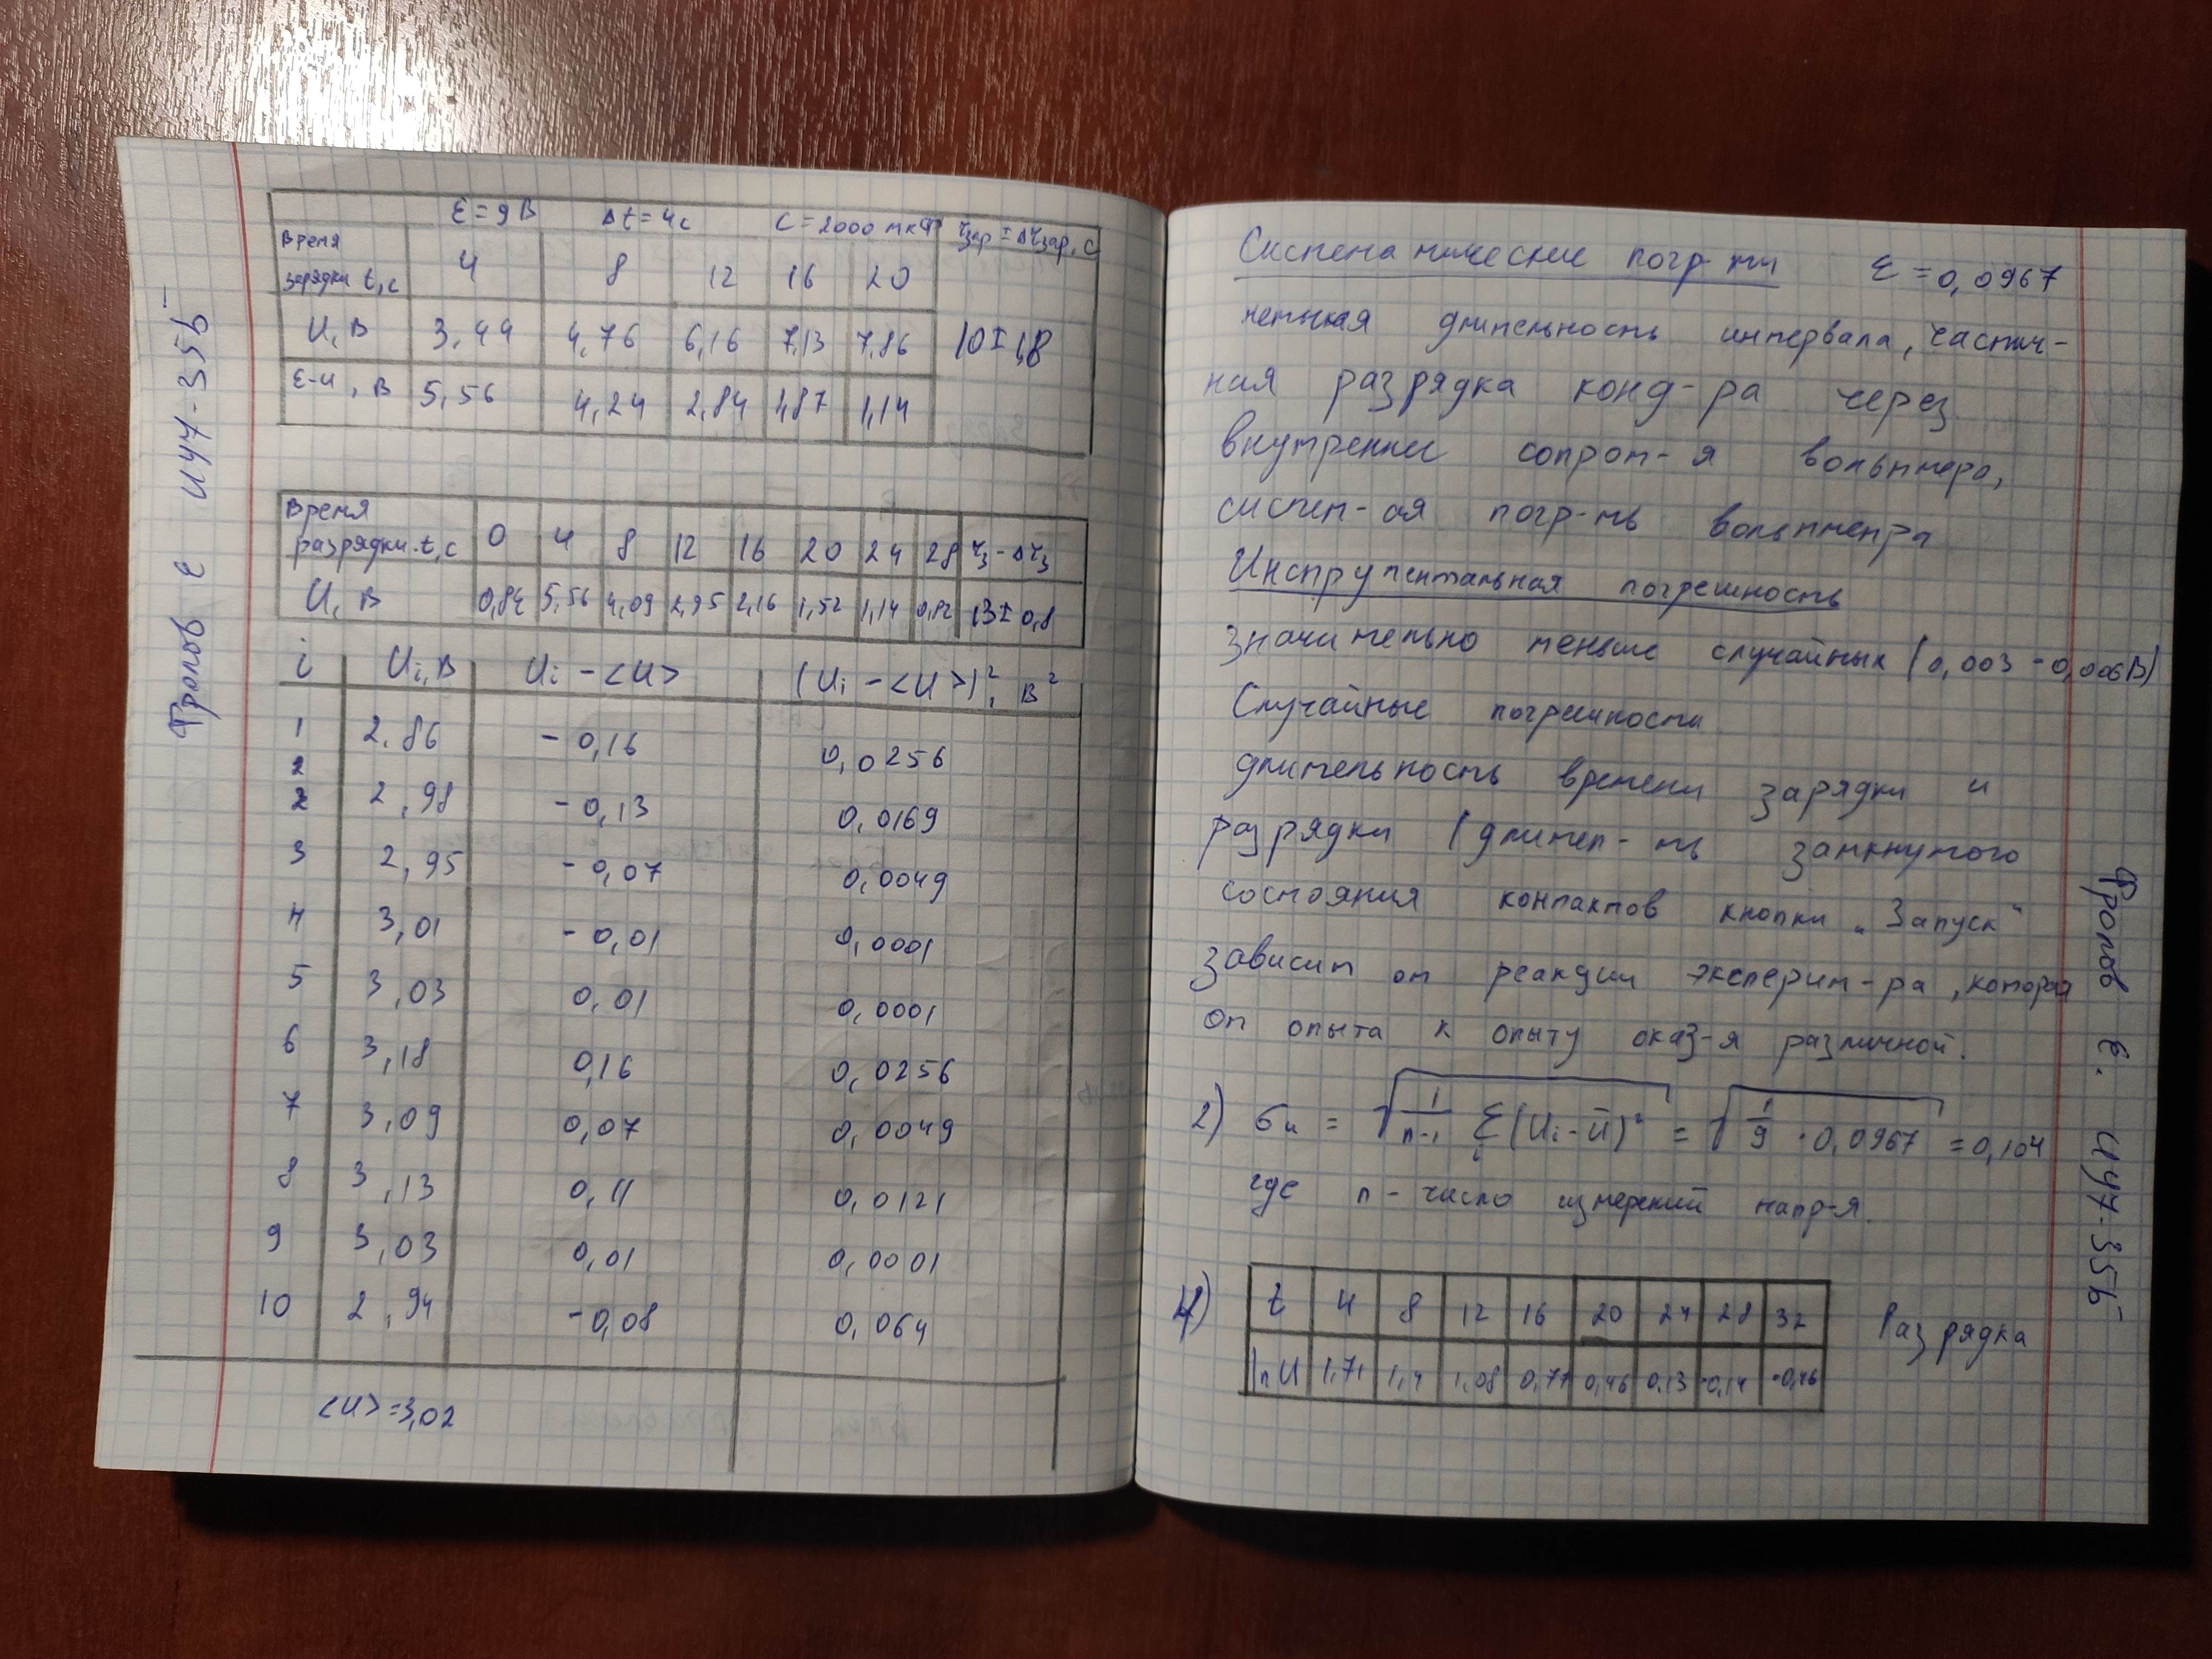 Фролов Е ИУ7-355
ε = 9 В Δt = 4с C = 2000 мкФ τзар ± Δτзар, с
Время зарядки t, с 4 8 12 16 20
U, В 3,44 4,76 6,16 7,13 7,86 10 ± 1,8
ε-U, В 5,56 4,24 2,84 1,87 1,14
Время разрядки t, с 0 4 8 12 16 20 24 28
U, В 5,56 4,09 2,95 2,16 1,52 1,14 0,82 13 ± 0,8
i Ui, В Ui - <U> (Ui - <U>)², В²
1 2.86 - 0,16 0,0256
2
2 2,98 - 0,13 0,0169
3 2,95 - 0,07 0,0049
4 3,01 - 0,01 0,0001
5 3,03 0,01 0,0001
6 3,18 0,16 0,0256
7 3,09 0,07 0,0049
8 3,13 0,11 0,0121
9 3,03 0,01 0,0001
10 2,94 - 0,08 0,064
<U> = 3,02
Систематические погр-ти Σ = 0,0967
длительность интервала, частич-
ная разрядка конд-ра через
внутреннее сопрот-я вольтметра,
систем-ая погр-ть вольтметра
Инструментальная погрешность
значительно меньше случайных (0,003 - 0,006В)
Случайные погрешности
длительность времени зарядки и
разрядки (длител-ть замкнутого
состояния контактов кнопки „Запуск"
зависит от реакции эксперим-ра, которая
от опыта к опыту оказ-я различной.
2) σu = √(1/(n-1) Σi (Ui - Ū)²) = √(1/9 · 0,0967) = 0,104
где n - число измерений напр-я.
4) t 4 8 12 16 20 24 28 32 Разрядка
ln U 1,71 1,4 1,08 0,77 0,46 0.13 -0,14 -0,46
Фролов Е. ИУ7-355